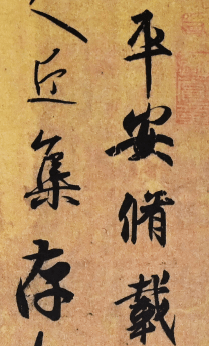 平安脩載
人近集存